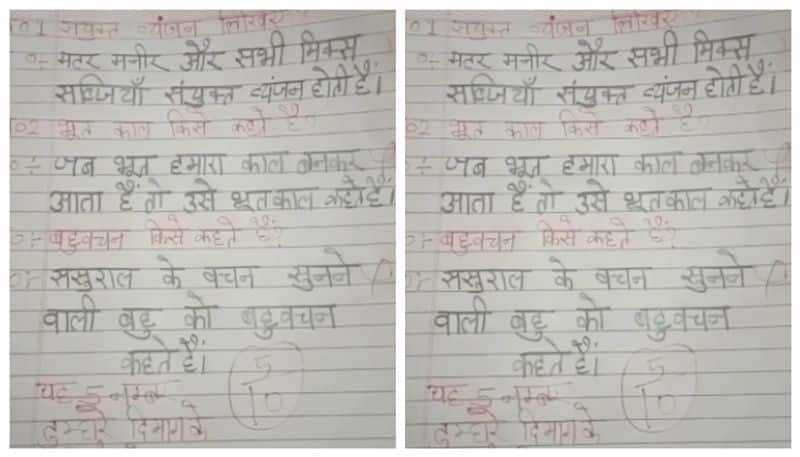 01 सयुक्त व्यंजन लिखिए
०:- मटर मनीर और सभी मिक्स
सब्जियाँ संयुक्त व्यंजन होती हैं।
02 भूत काल किसे कहते हैं?
०:- जब भूत हमारा काल बनकर
आता हैं तो उसे भूतकाल कहते हैं।
०:- बहुवचन किसे कहते हैं?
०:- ससुराल के वचन सुनने
वाली बहु को बहुवचन
कहते हैं।
5/10
यह 5 नम्बर
तुम्हारे दिमाग के
01 सयुक्त व्यंजन लिखिए
०:- मटर मनीर और सभी मिक्स
सब्जियाँ संयुक्त व्यंजन होती हैं।
02 भूत काल किसे कहते हैं?
०:- जब भूत हमारा काल बनकर
आता हैं तो उसे भूतकाल कहते हैं।
०:- बहुवचन किसे कहते हैं?
०:- ससुराल के वचन सुनने
वाली बहु को बहुवचन
कहते हैं।
5/10
यह 5 नम्बर
तुम्हारे दिमाग के